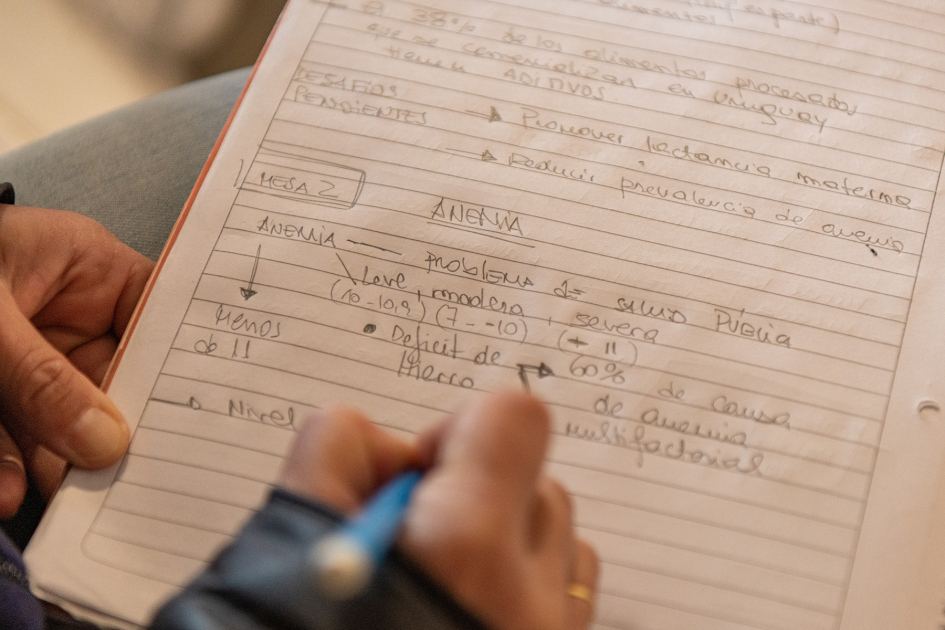 El 38% de los alimentos procesados
que se comercializan en Uruguay
tienen ADITIVOS.
DESAFÍOS
PENDIENTES → Promover lactancia materna
→ Reducir prevalencia de anemia
MESA 2
ANEMIA
ANEMIA — PROBLEMA DE SALUD PÚBLICA
Leve, modera, severa
(10-10,9) (7--10) (+ 11)
Menos
de 11
• Deficit de
Hierro → 60% de causa
de anemia
multifactorial
→ Nivel